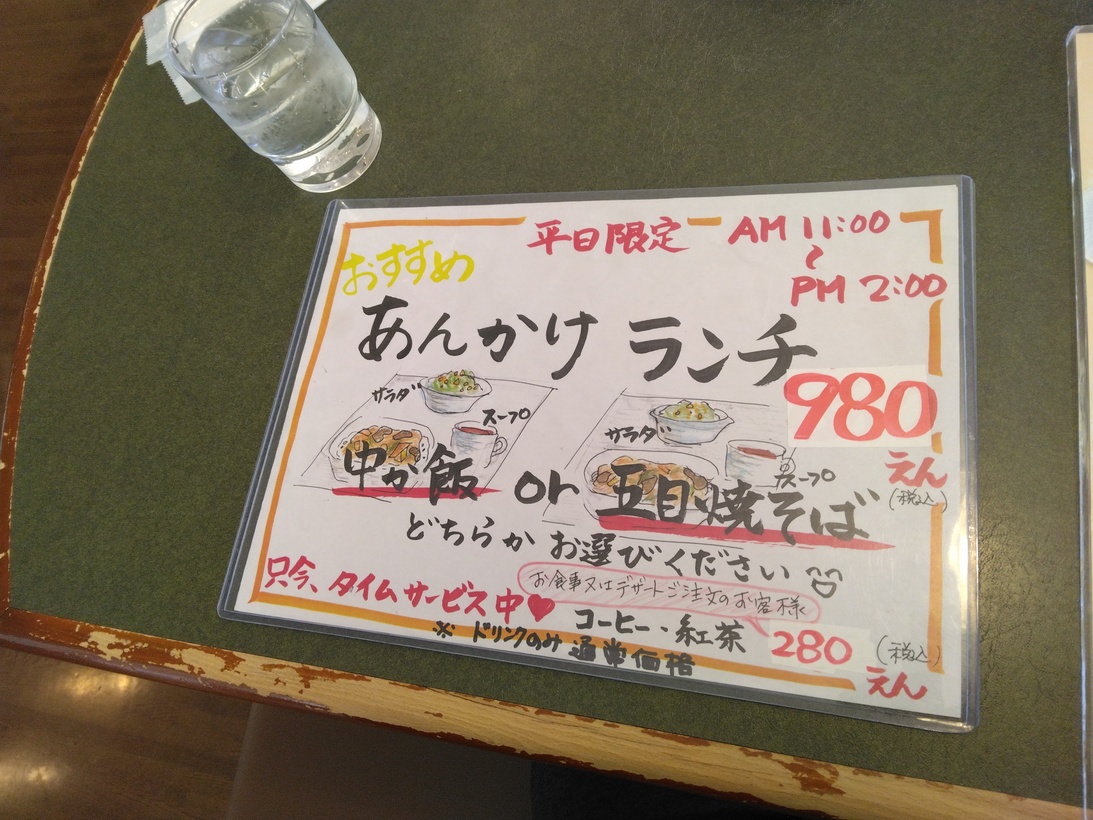 平日限定 AM 11:00
〜
PM 2:00
おすすめ
あんかけ ランチ
980
えん
(税込)
サラダ
スープ
サラダ
スープ
中か飯 or 五目焼そば
どちらか お選びください
只今、タイムサービス中♥
お食事又はデザートご注文のお客様
コーヒー・紅茶 280 (税込)
えん
※ ドリンクのみ 通常価格